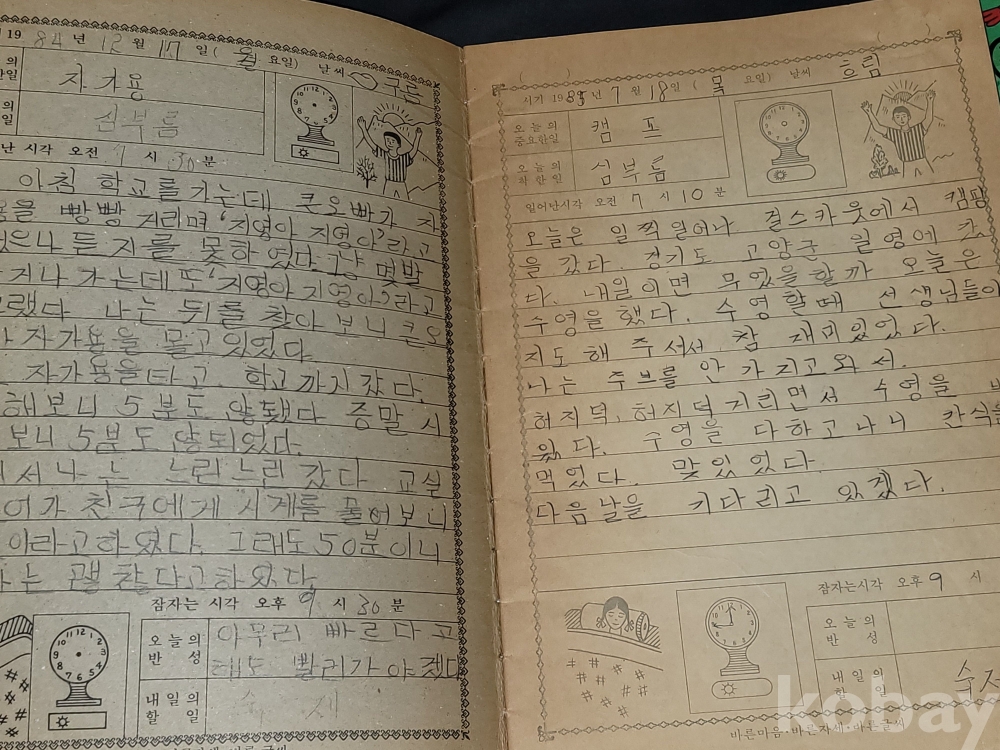 19 84 년 12 월 17 일 ( 월 요일) 날씨 구름
의
한일
자가용
의
일
심부름
난 시각 오전 7 시 30 분
아침 학교를 가는데 큰오빠가 자
용을 빵빵 거리며 '지영아 지영아'라고
으나 듣지를 못하였다. 그냥 몇발
지나 가는데 또 '지영아 지영아'라고
렀다. 나는 뒤를 찾아 보니 큰오
가 자가용을 몰고 있었다.
자가용을 타고 학교까지 갔다.
해보니 5분도 않됐다 증말 시
보니 5분도 않되었다.
서 나는 느린느린 갔다 교실
어가 친구에게 시계를 물어보니
이라고 하였다. 그래도 50분이니
나는 괜찮다고 하였다.
잠자는 시각 오후 9 시 30 분
오늘의
반 성
아무리 빠르다고
해도 빨리가야겠다
내일의
할 일
숙 제
( )
( )
시기 1985년 7 월 18일 ( 목 요일) 날씨 흐림
오늘의
중요한일
캠프
오늘의
착한일
심부름
일어난시각 오전 7 시 10 분
오늘은 일찍일어나 걸스카웃에서 캠핑
을 갔다 경기도 고양군 일영에 갔
다. 내일이면 무었을할까 오늘은
수영을 했다. 수영할때 선생님들이
지도해 주셔서 참 재미있었다.
나는 주브를 안 가지고와서.
허지덕, 허지덕거리면서 수영을
었다. 수영을 다하고나니 간식을
먹었다. 맞있었다
다음날을 키다리고 있겠다.
잠자는시각 오후 9 시
오늘의
반 성
내일의
할 일
바른마음·바른자세·바른글씨
kobay